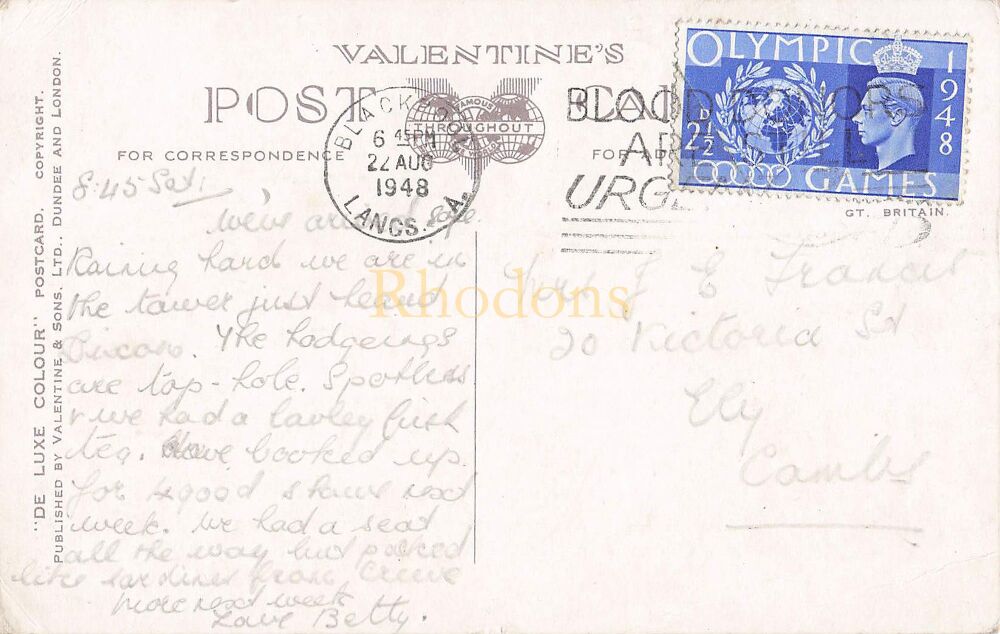 VALENTINE'S
POST CARD
FAMOUS
THROUGHOUT
FOR CORRESPONDENCE
BLACKPOOL
6 45 PM
22 AUG
1948
LANCS. A.
BLOOD DONORS
ARE STILL
URGENTLY
OLYMPIC
1948
2½D
GAMES
GT. BRITAIN.
"DE LUXE COLOUR" POSTCARD. COPYRIGHT.
PUBLISHED BY VALENTINE & SONS, LTD., DUNDEE AND LONDON.
8.45 Sat.
We've arrived safe.
Raining hard we are in
the tower just heard
Dixon. The lodgeings
are top-hole. Spotless
& we had a lavley fish
tea. Have booked up
for 4 good shows next
week. We had a seat
all the way but packed
like sardines from Crewe
more next week
Love Betty.
Mrs J E Francis
20 Victoria St
Ely
Cambs
Rhodons